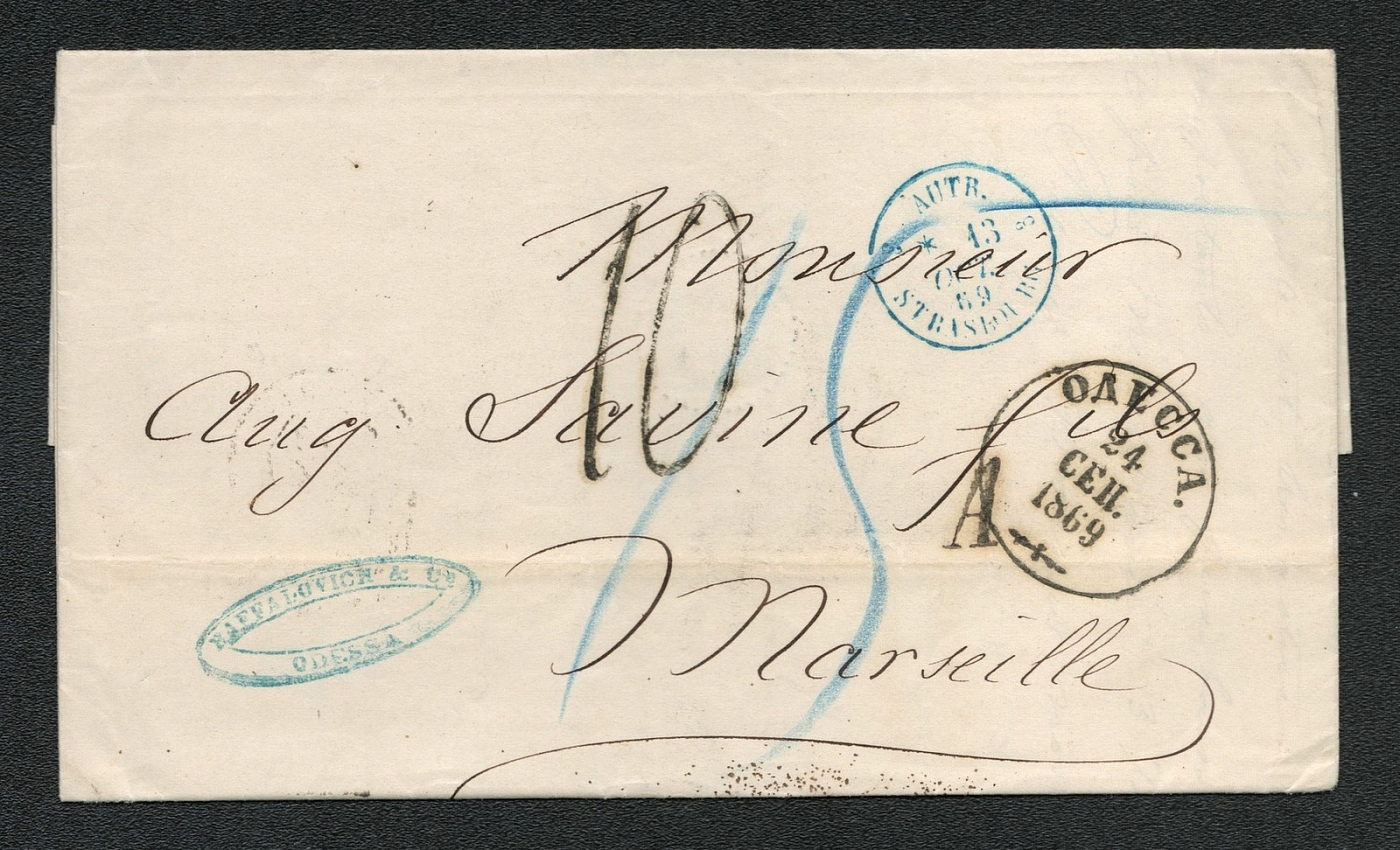 Monsieur
Aug Savine fils
Marseille
10
15
AUTR.
13
OCT.
69
STRASBOURG
ОДЕССА.
24
СЕП.
1869
A
RAFFALOVICH & Co
ODESSA